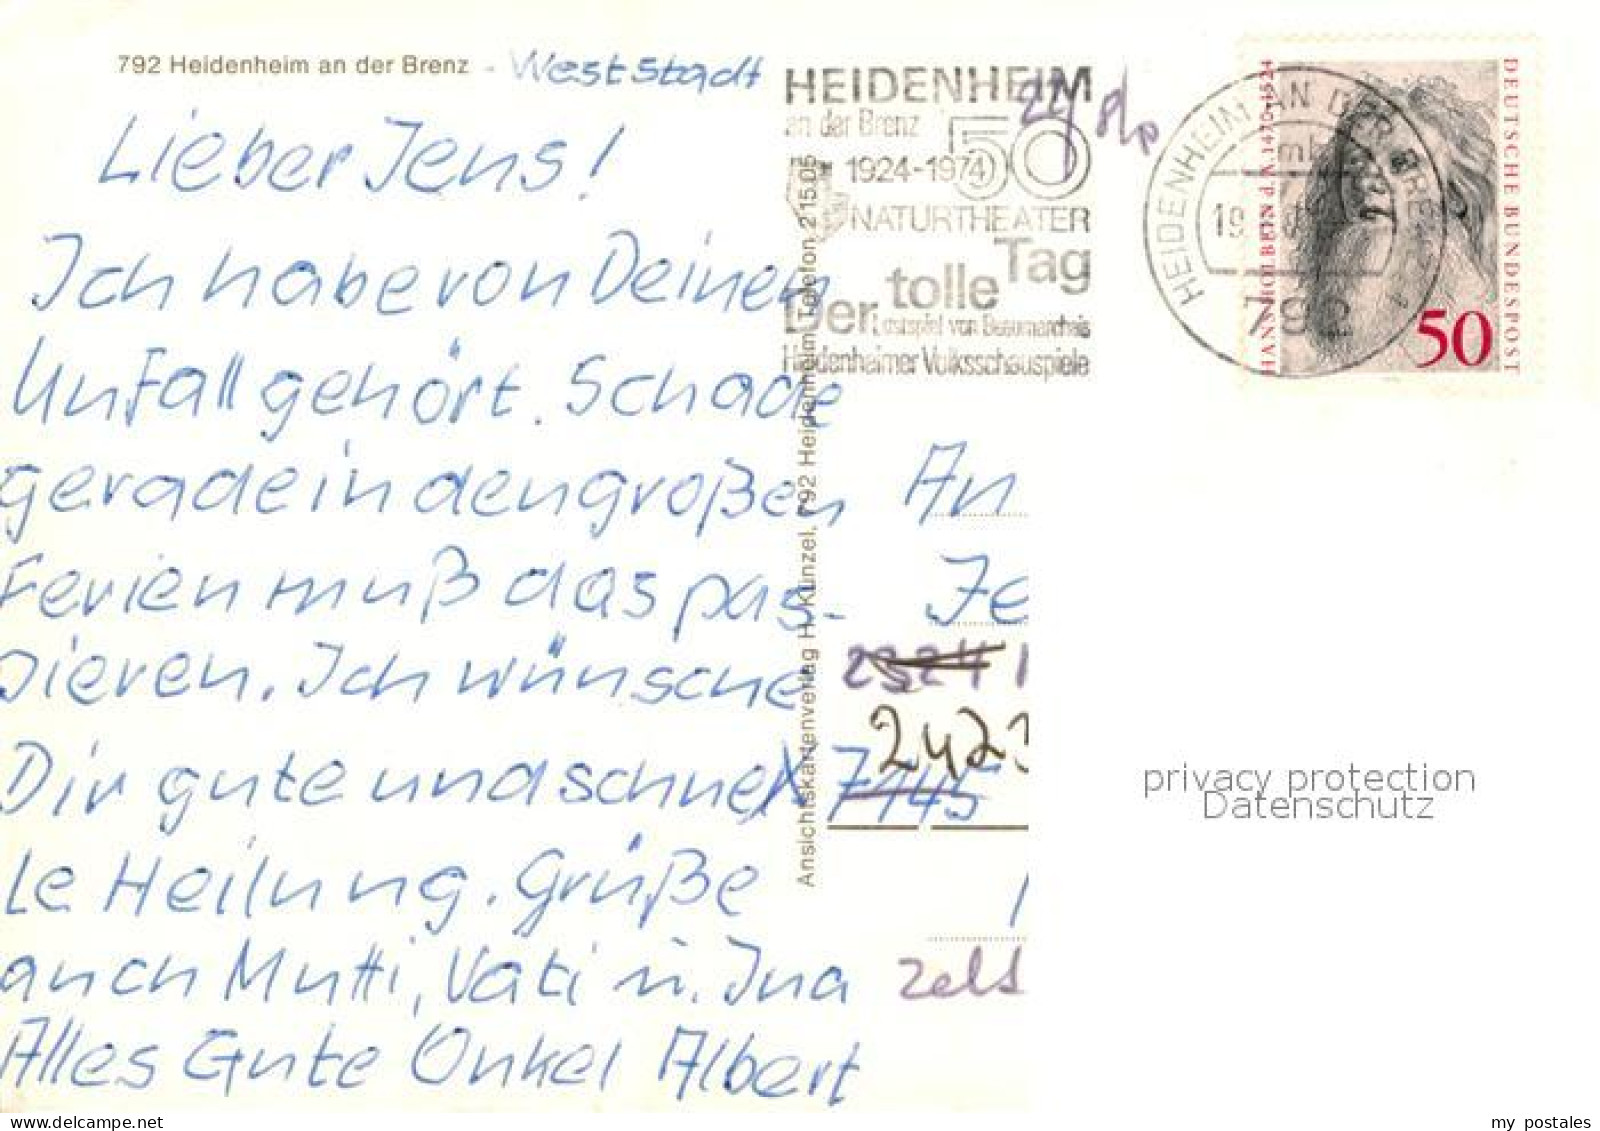 792 Heidenheim an der Brenz - Weststadt
Lieber Jens!
Ich habe von Deinem
Unfall gehört. Schade
gerade in den großen
Ferien muß das pas-
sieren. Ich wünsche
Dir gute und schnel
le Heilung. Grüße
auch Mutti, Vati u. Ina
Alles Gute Onkel Albert
Ansichtskartenverlag H. Künzel, 792 Heidenheim, Telefon 21505
HEIDENHEIM
an der Brenz
50
1924-1974
NATURTHEATER
Der tolle Tag
Lustspiel von Beaumarchais
Heidenheimer Volksschauspiele
HEIDENHEIM AN DER BRENZ
19
792
HANS HOLBEIN d. Ä. 1470-1524
DEUTSCHE BUNDESPOST
50
An
Je
2423
7145
privacy protection
Datenschutz
my postales